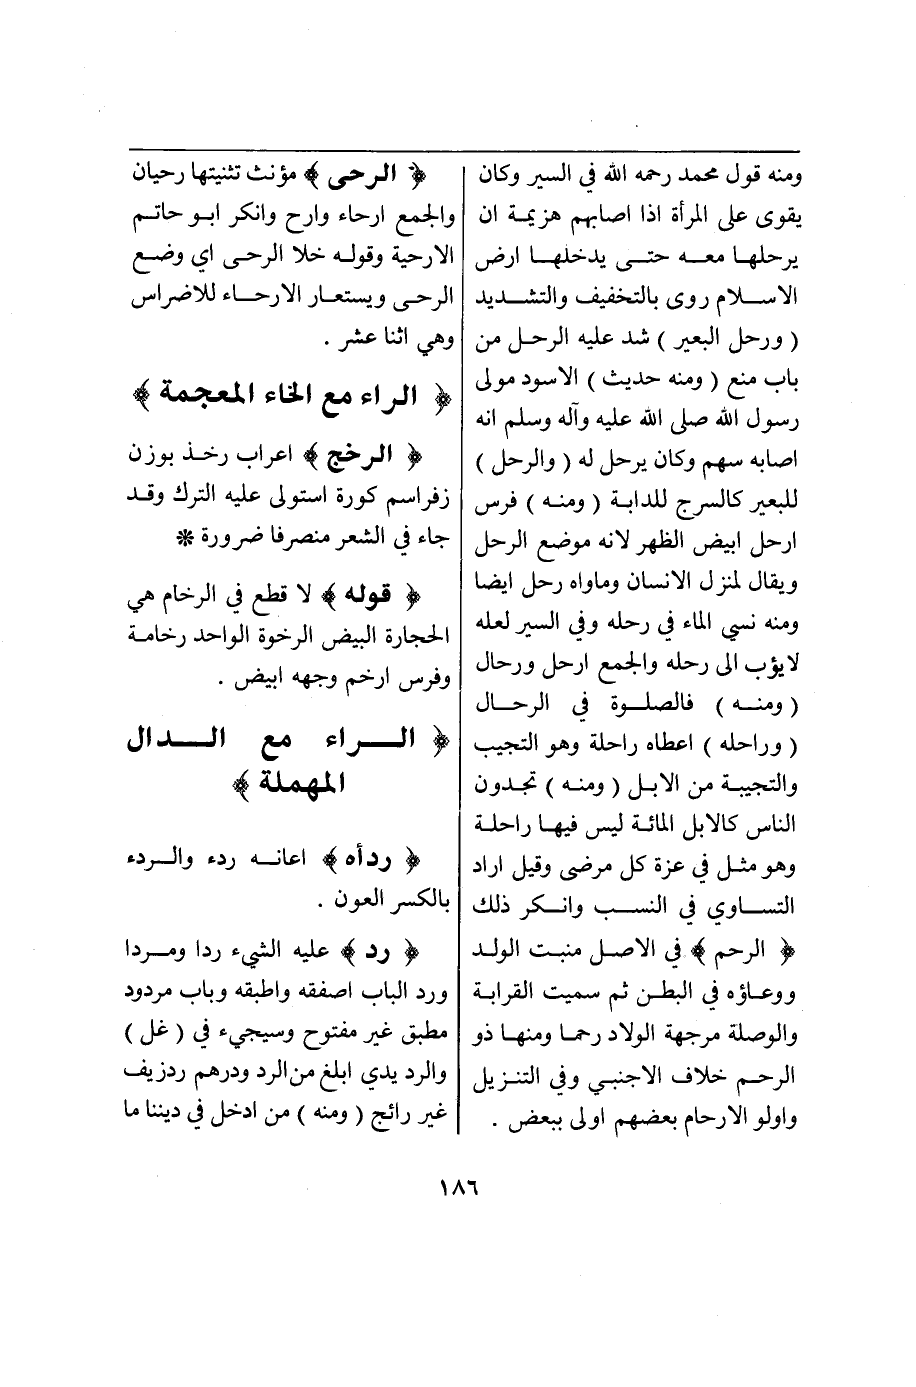 ومنه قول محمد رحمه الله في السير وكان
يقوى على المرأة اذا اصابهم هزيمة ان
يرحلها معه حتى يدخلها ارض
الاسلام روى بالتخفيف والتشديد
( ورحل البعير ) شد عليه الرحل من
باب منع ( ومنه حديث ) الاسود مولى
رسول الله صلى الله عليه وآله وسلم انه
اصابه سهم وكان يرحل له ( والرحل )
للبعير كالسرج للدابة ( ومنه ) فرس
ارحل ابيض الظهر لانه موضع الرحل
ويقال لمنزل الانسان وماواه رحل ايضا
ومنه نسي الماء في رحله وفي السير لعله
لايؤب الى رحله والجمع ارحل ورحال
( ومنه ) فالصلوة في الرحال
( وراحله ) اعطاه راحلة وهو النجيب
والنجيبة من الابل ( ومنه ) تجدون
الناس كالابل المائة ليس فيها راحلة
وهو مثل في عزة كل مرضى وقيل اراد
التساوي في النسب وانكر ذلك
﴿ الرحم ﴾ في الاصل منبت الولد
ووعاؤه في البطن ثم سميت القرابة
والوصلة مرجهة الولاد رحما ومنها ذو
الرحم خلاف الاجنبي وفي التنزيل
واولو الارحام بعضهم اولى ببعض .
﴿ الرحى ﴾ مؤنث تثنيتها رحيان
والجمع ارحاء وارح وانكر ابو حاتم
الارحية وقوله خلا الرحى اي وضع
الرحى ويستعار الارحاء للاضراس
وهي اثنا عشر .
﴿ الراء مع الخاء المعجمة ﴾
﴿ الرخج ﴾ اعراب رخذ بوزن
زفراسم كورة استولى عليه الترك وقد
جاء في الشعر منصرفا ضرورة *
﴿ قوله ﴾ لا قطع في الرخام هي
الحجارة البيض الرخوة الواحد رخامة
وفرس ارخم وجهه ابيض .
﴿ الراء مع الدال
المهملة ﴾
﴿ ردأه ﴾ اعانه ردء والردء
بالكسر العون .
﴿ رد ﴾ عليه الشيء ردا ومردا
ورد الباب اصفقه واطبقه وباب مردود
مطبق غير مفتوح وسيجيء في ( غل )
والرد يدي ابلغ من الرد ودرهم ردزيف
غير رائج ( ومنه ) من ادخل في ديننا ما
١٨٦